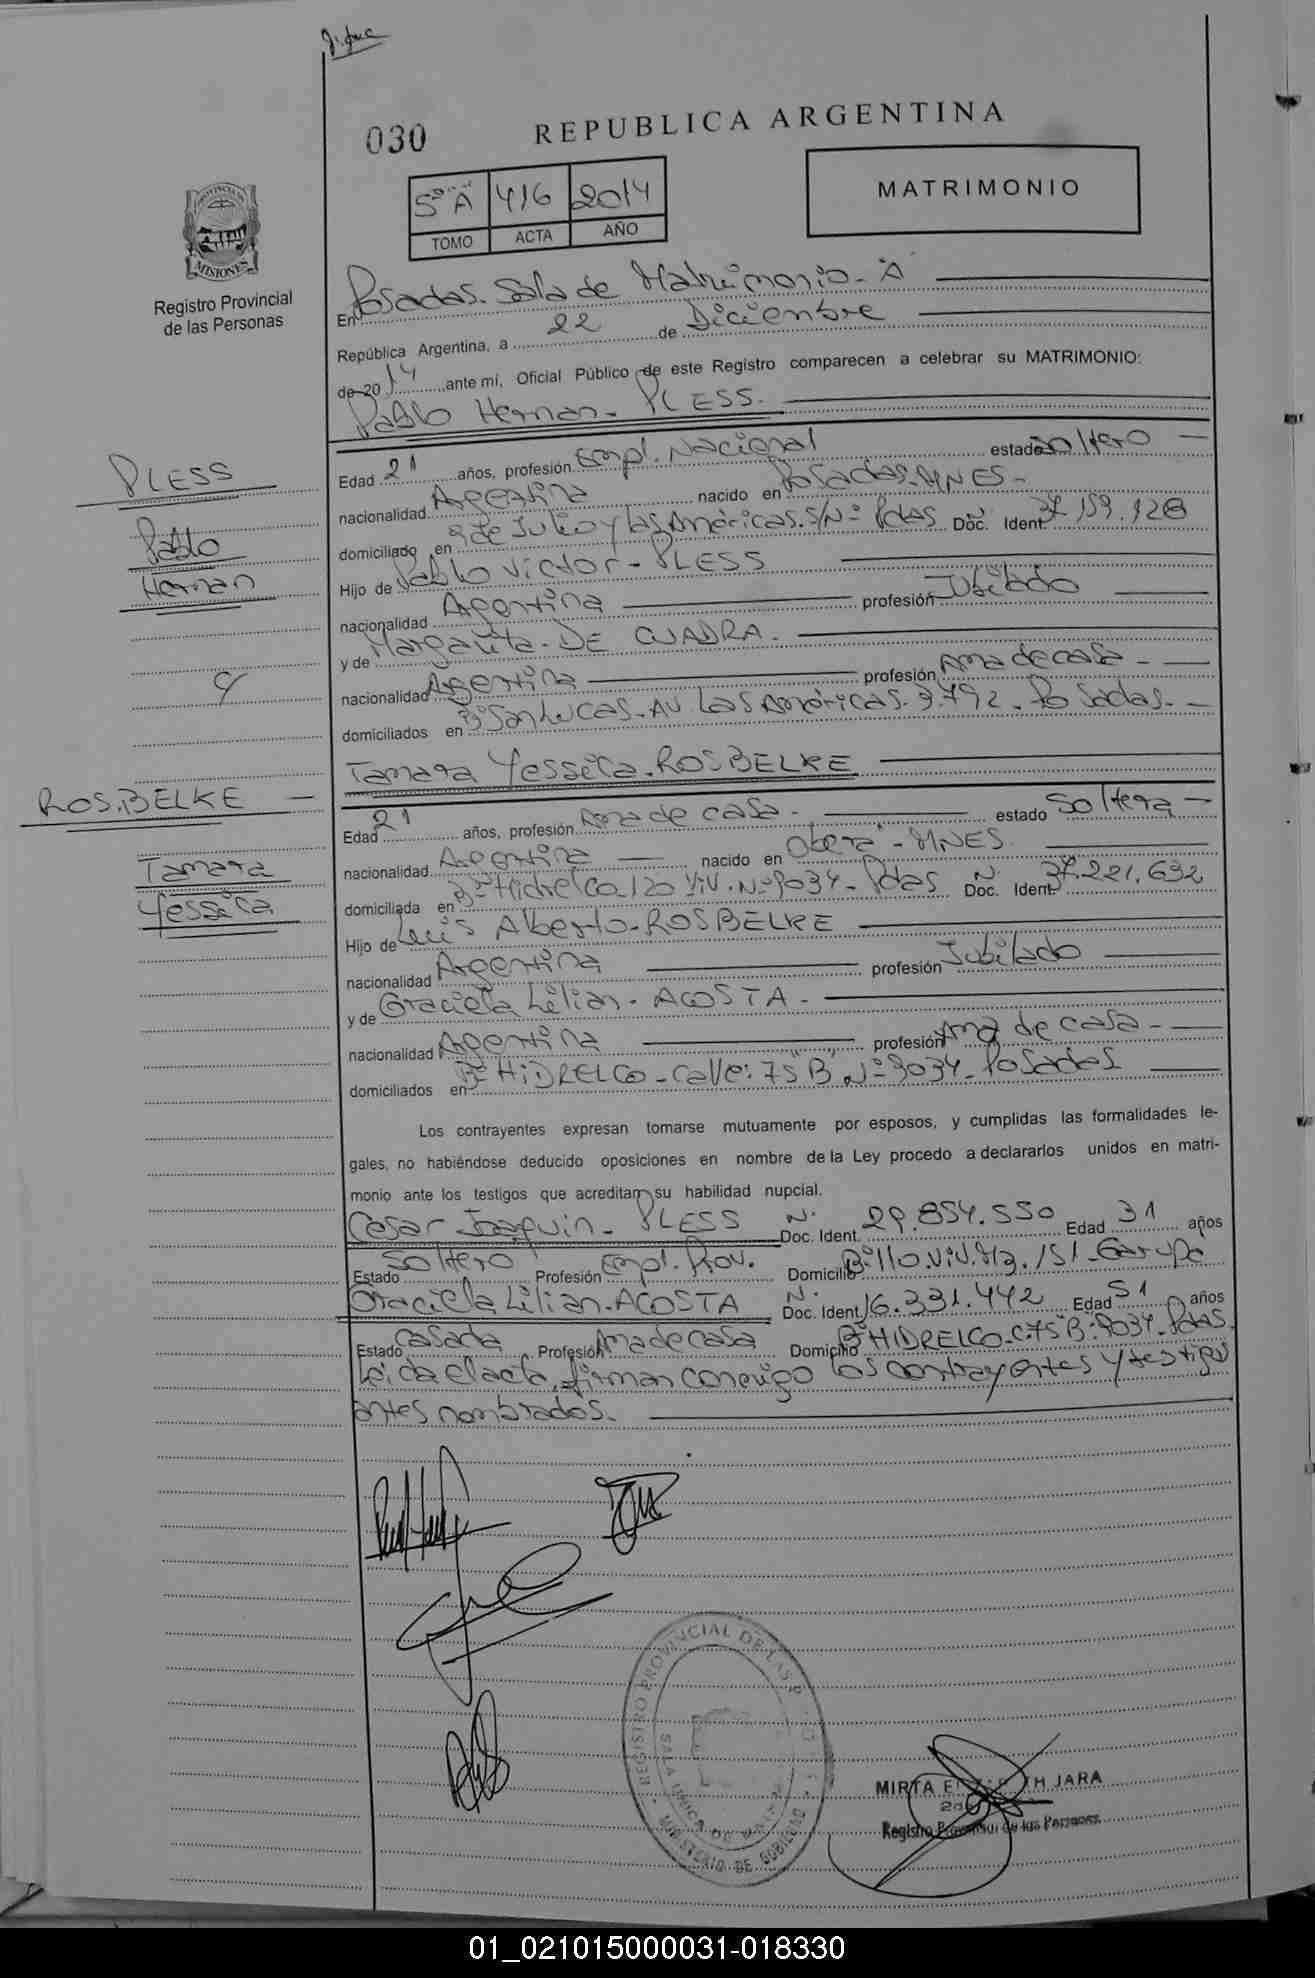 030
REPUBLICA ARGENTINA
5º "A" 416 2014
TOMO ACTA AÑO
MATRIMONIO
PROVINCIA DE
MISIONES
Registro Provincial
de las Personas
En Posadas. Sala de Matrimonio - "A"
República Argentina, a 22 de Diciembre
de 2014 ante mí, Oficial Público de este Registro comparecen a celebrar su MATRIMONIO:
Pablo Hernan - PLESS.
PLESS
Pablo
Hernan
Edad 21 años, profesión Empl. Nacional estado soltero
nacionalidad Argentina nacido en Posadas. MNES -
domiciliado en 9 de Julio y las Américas. S/Nº Pdas Doc. Ident. 37.159.128
Hijo de Pablo Victor - PLESS
nacionalidad Argentina profesión Jubilado
y de Margarita - DE CUADRA.
nacionalidad Argentina profesión Ama de casa -
domiciliados en Bº San Lucas. AV. Las Américas. 9.792 - Posadas. -
Tamara Yessica - ROSBELKE
y
ROS.BELKE
Tamara
Yessica
Edad 21 años, profesión Ama de casa - estado Soltera
nacionalidad Argentina nacido en Oberá - MNES.
domiciliada en Bº Hidrelco 120 Viv. Nº 9034 - Pdas N. Doc. Ident. 37.221.632
Hijo de Luis Alberto - ROSBELKE
nacionalidad Argentina profesión Jubilado
y de Graciela Lilian - ACOSTA -
nacionalidad Argentina profesión Ama de casa -
domiciliados en Bº HIDRELCO - calle: 75 "B" Nº 9034 - Posadas
Los contrayentes expresan tomarse mutuamente por esposos, y cumplidas las formalidades le-
gales, no habiéndose deducido oposiciones en nombre de la Ley procedo a declararlos unidos en matri-
monio ante los testigos que acreditan su habilidad nupcial.
Cesar Joaquin - PLESS N. Doc. Ident. 29.854.550 Edad 31 años
Estado soltero Profesión Empl. Prov. Domicilio Bº 110 Viv. Mz. 151 - Garupa
Graciela Lilian - ACOSTA N. Doc. Ident. 16.331.442 Edad 51 años
Estado casada Profesión Ama de casa Domicilio Bº HIDRELCO - C. 75 "B" 9034 - Pdas.
Leida el acta, firman conmigo los contrayentes y testigos
antes nombrados.
REGISTRO PROVINCIAL DE LAS
SALA UNICA DE
MINISTERIO DE GOBIERNO
MIRTA JARA
Registro Provincial de las Personas
01_021015000031-018330